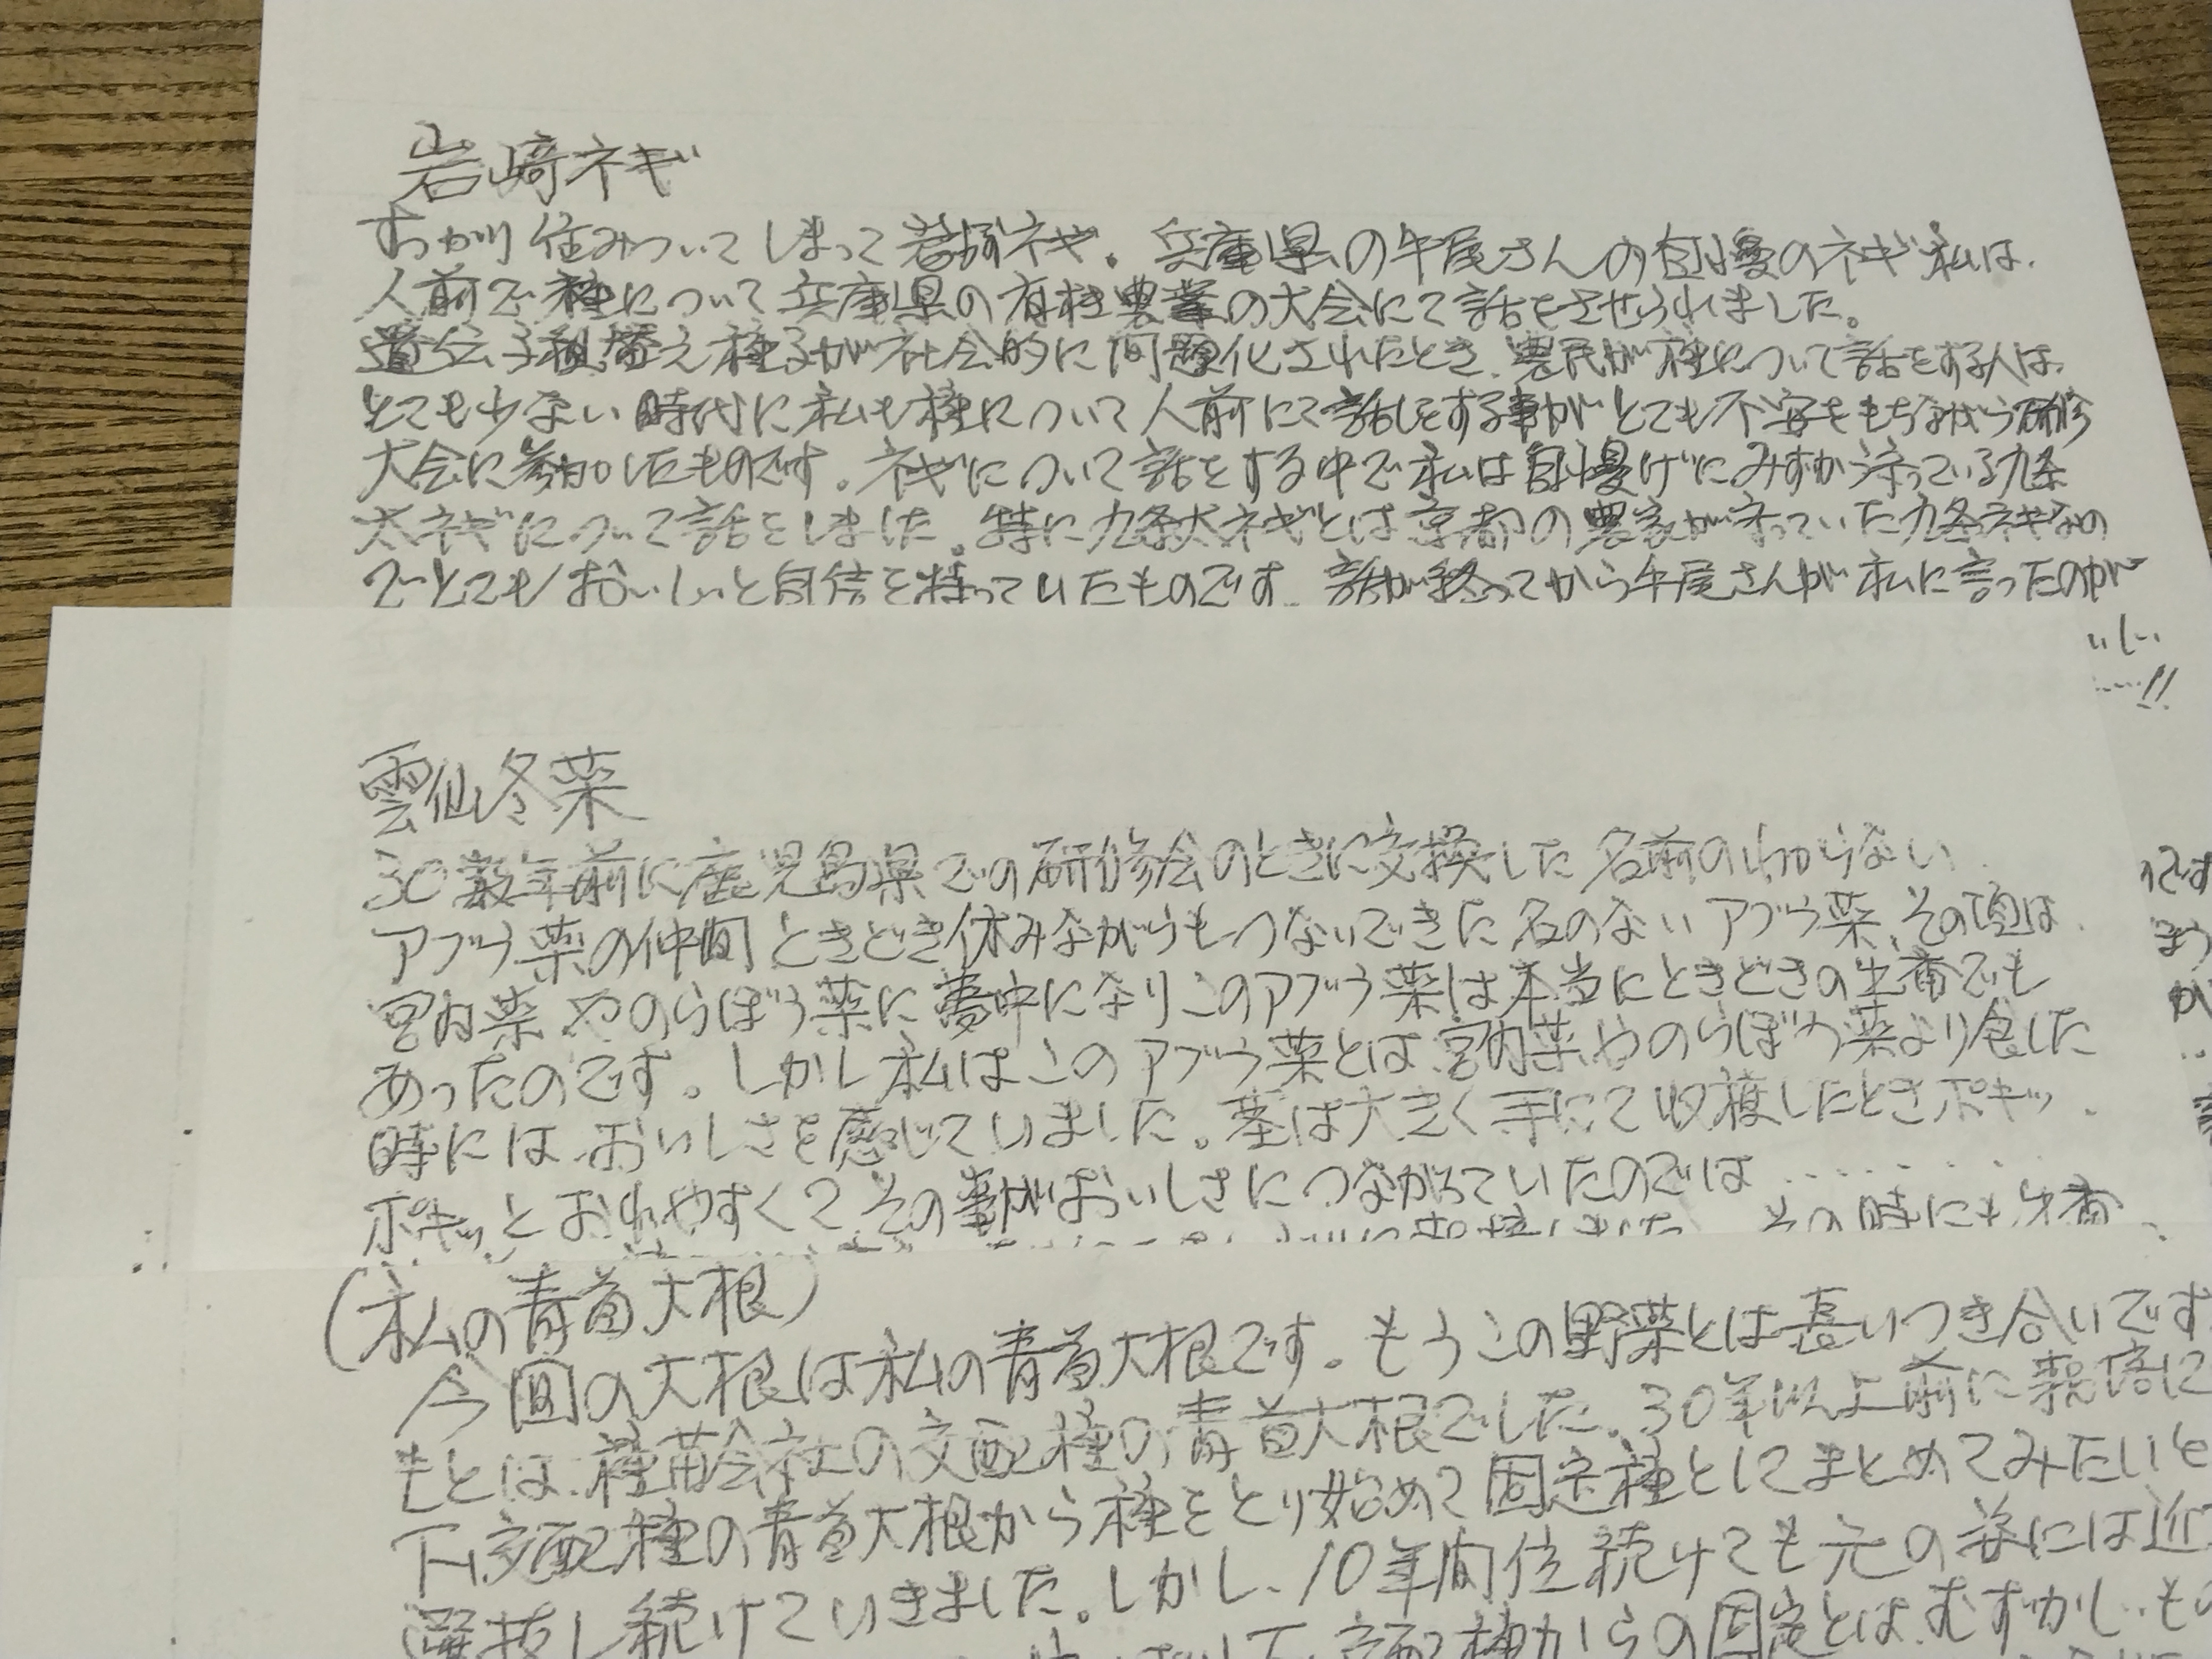 岩崎ネギ
すっかり住みついてしまって岩崎ネギ。兵庫県の牛尾さんの自慢のネギ私は、
人前で種について兵庫県の有機農業の大会にて話をさせられました。
遺伝子組替え種子が社会的に問題化されたとき、農民が種について話をする人は、
とても少ない時代に私も種について人前にて話しをする事がとても不安をもちながら研修
大会に参加したものです。ネギについて話をする中で私は自慢げにみずから守っている九条
太ネギについて話をしました。特に九条太ネギとは京都の農家が守っていた九条ネギなの
でとてもおいしいと自信を持っていたものです。話が終ってから牛尾さんが私に言ったのが
いしい
……!!
雲仙冬菜
30数年前に鹿児島県での研修会のときに交換した名前のわからない
アブラ菜の仲間ときどき休みながらもつないできた名のないアブラ菜、その頃は
宮内菜やのらぼう菜に夢中になりこのアブラ菜は本当にときどきの出番でも
あったのです。しかし私はこのアブラ菜とは宮内菜やのらぼう菜より食した
時にはおいしさを感じていました。茎は大きく手にて収穫したときポキッ、
ポキッとおれやすくてその事がおいしさにつながっていたのでは………
その時にも出番
(私の青首大根)
今回の大根は私の青首大根です。もうこの野菜とは長いつき合いです
もとは、種苗会社の交配種の青首大根でした。30年以上前に栽培に
F1交配種の青首大根から種をとり始めて固定種としてまとめてみたいと
選抜し続けていきました。しかし、10年間位続けても元の姿には近
交配種からの固定とはむずかしいもの